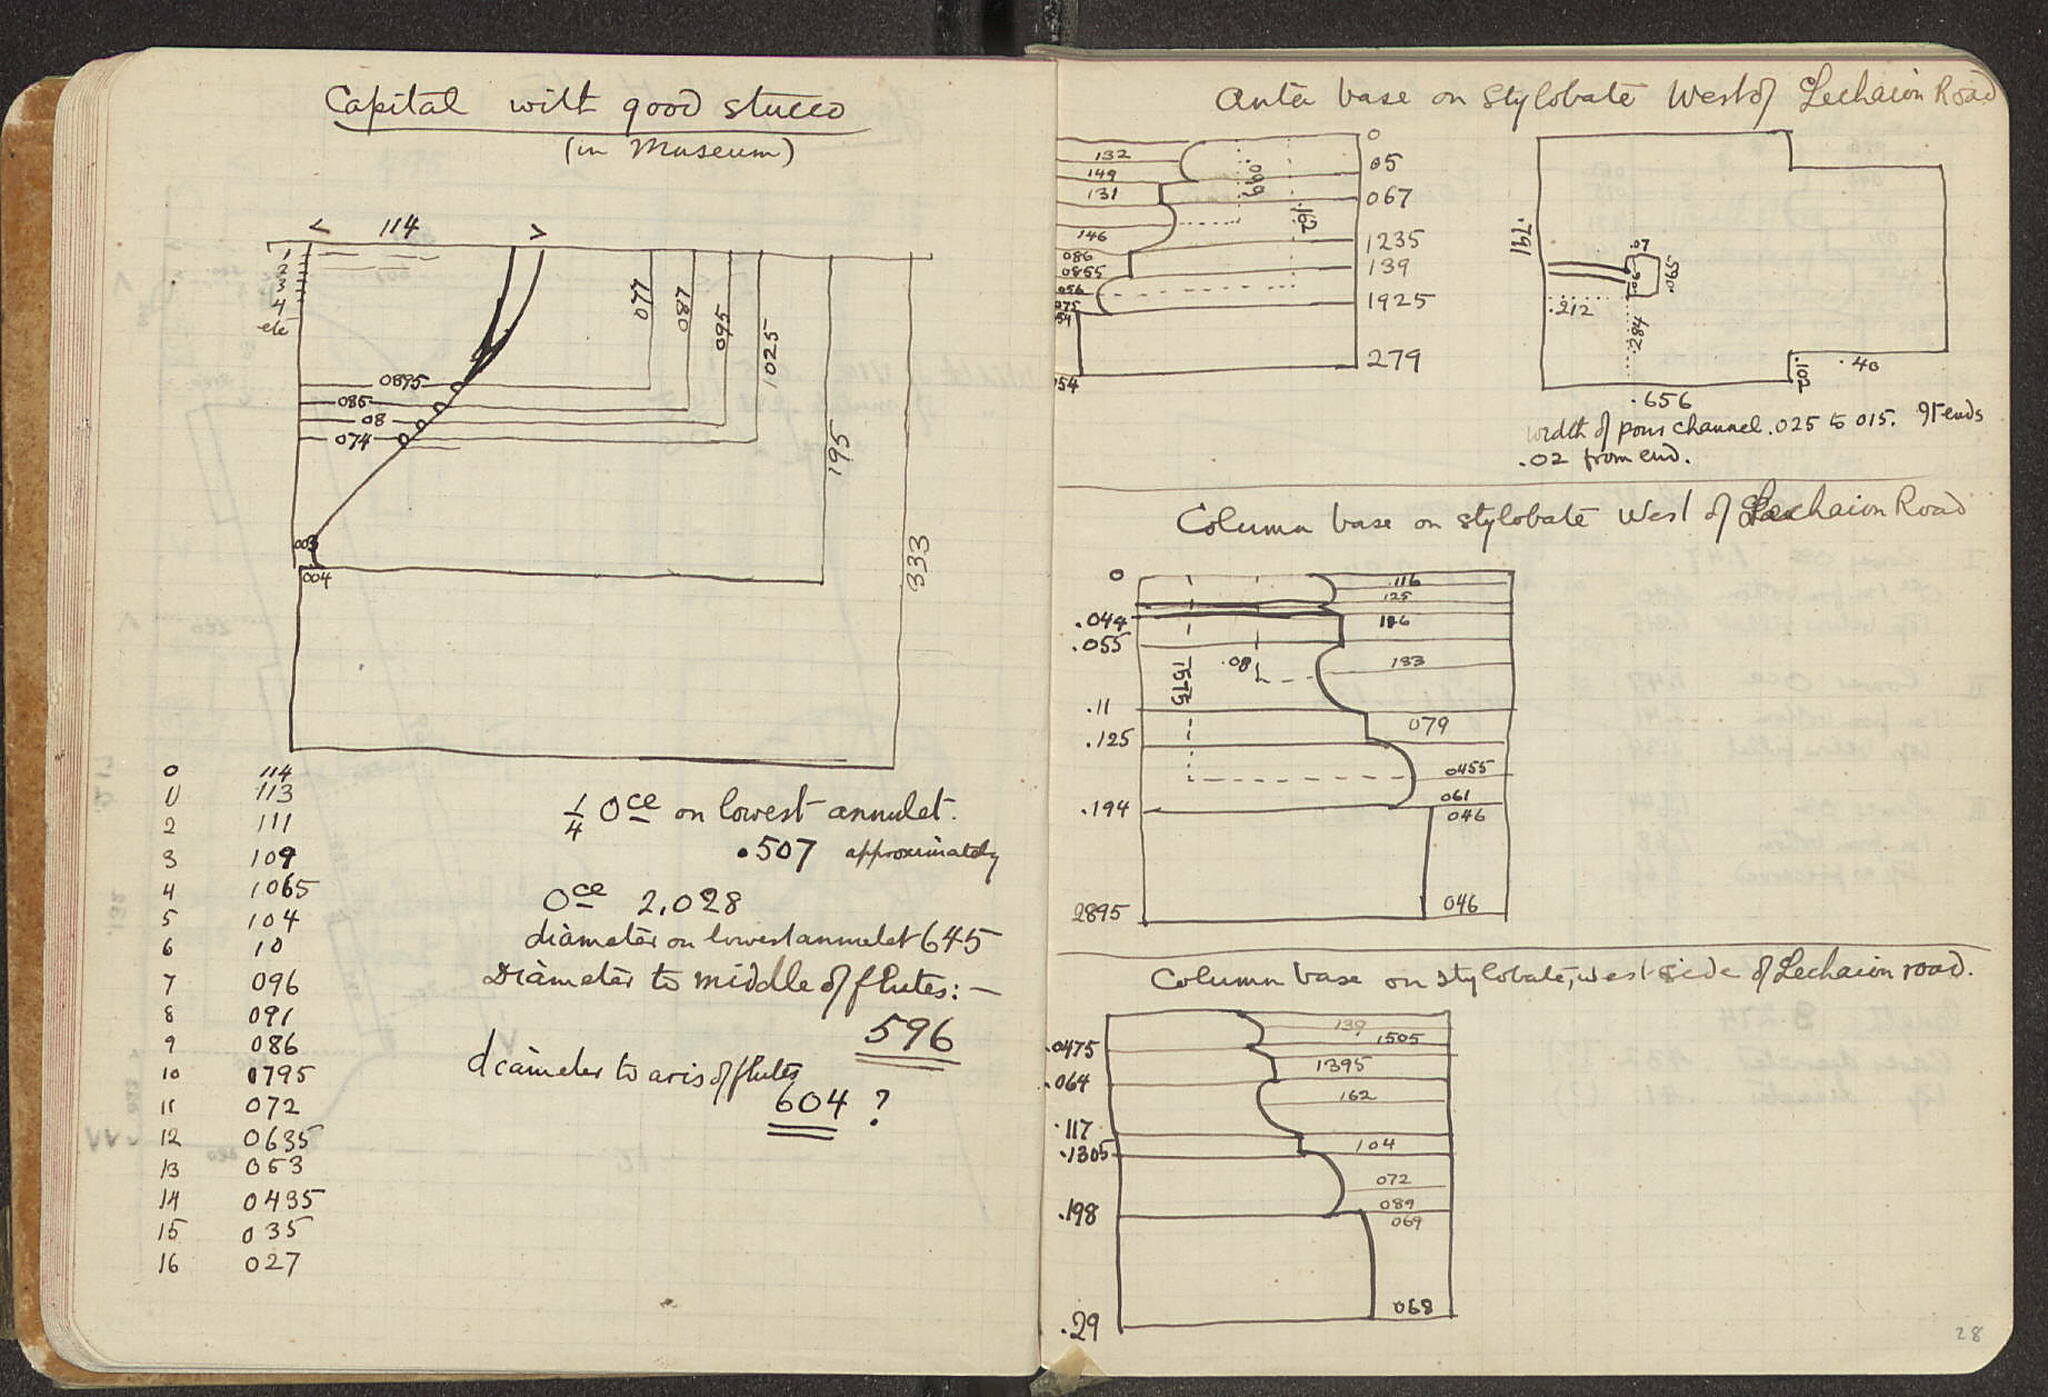 Capital with good stucco
(in Museum)
< 114 >
1
2
3
4
etc
077
087
095
1025
195
333
0895
085
08
074
003
004
0 114
1 113
2 111
3 109
4 1065
5 104
6 10
7 096
8 091
9 086
10 0795
11 072
12 0635
13 053
14 0435
15 035
16 027
1/4 0ce on lowest annulet.
.507 approximately
0ce 2,028
diameter on lowest annulet 645
Diameter to middle of flutes: —
596
diameter to aris of flutes
604 ?
Anta base on stylobate West of Lechaion Road
132
149
131
146
086
0855
056
075
54
54
.099
.102
0
05
067
1235
139
1925
279
.791
.07
.590
.212
.284
.656
.102
.40
width of pour channel .025 to 015. It ends
.02 from end.
Column base on stylobate West of Lechaion Road
0
.044
.055
.11
.125
.194
2895
1575
.08
.116
125
116
133
079
0455
061
046
046
Column base on stylobate, west side of Lechaion road.
.0475
.064
.117
.1305
.198
.29
139
1505
1395
162
104
072
089
069
068
28